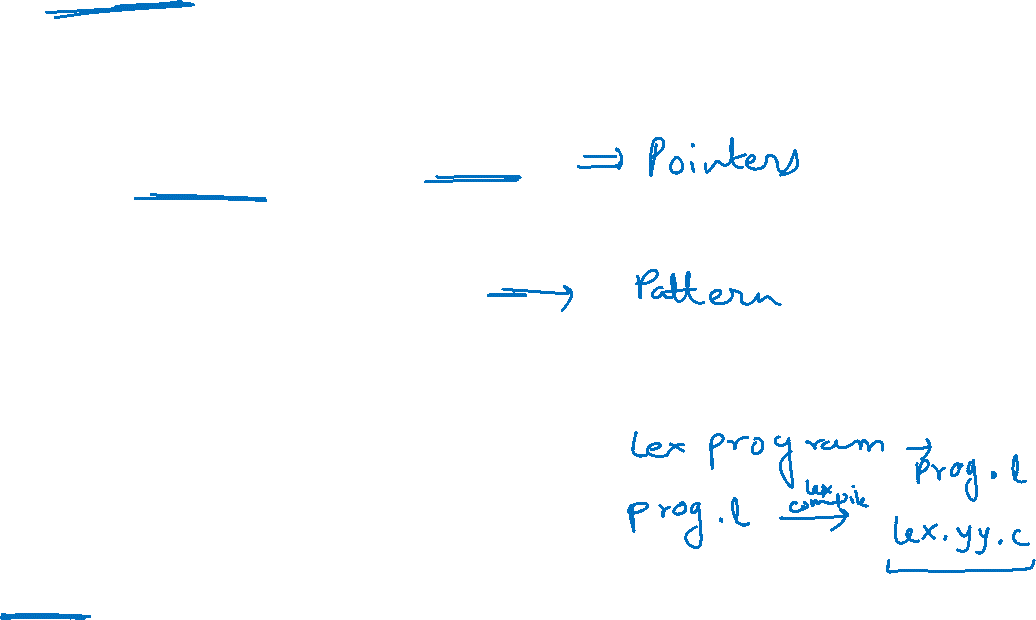 ⇒ Pointers
→ Pattern
lex program → prog.l
prog.l lex compile → lex.yy.c